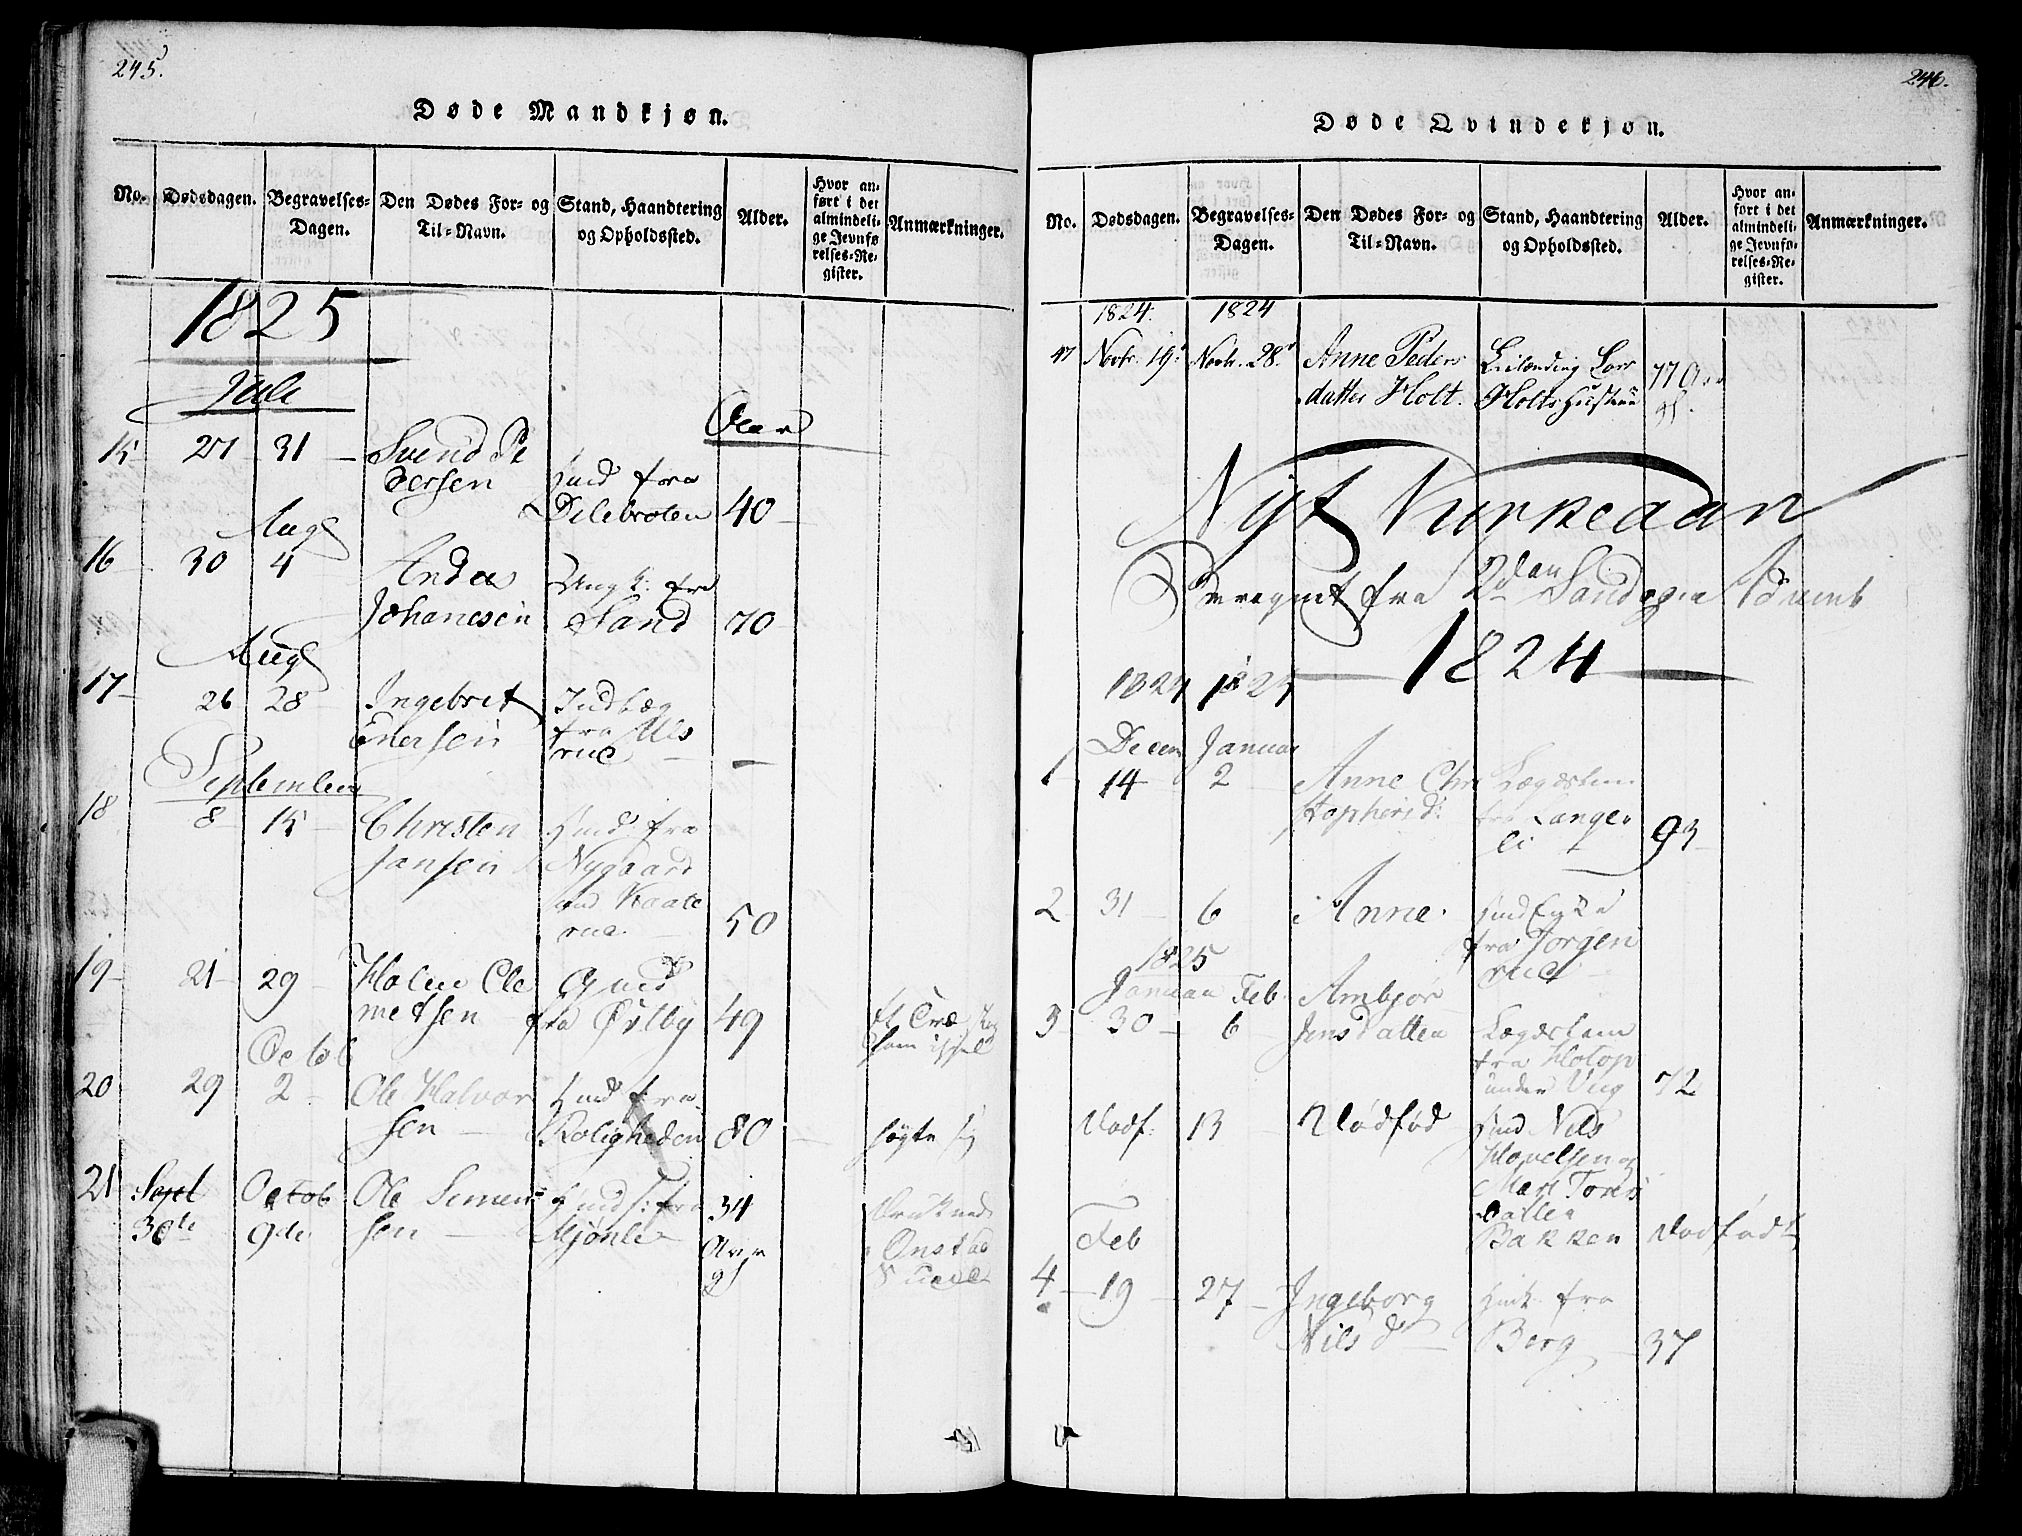 245.
Døde Mandkjøn.
No.
Dødsdagen.
Begravelses-
Dagen.
Den Dødes For- og
Til-Navn.
Stand, Haandtering
og Opholdssted.
Alder.
Hvor an-
ført i det
almindeli-
ge Jevnfø
relses-Re-
gister.
Anmærkninger.
1825
Julii
Aar
15 27 31 Svend Pe
dersen
fra
Delebroten 40
Aug
16 30 4 Andas
Johanesen
Ungk: fra
Sand 70
Aug
17 26 28 Ingebret
Enersen
fra Uls
rue
September
18 8 15 Christen
Jansen
Hmd: fra
Nygaard
und Kaate
rue. 50
19 21 29 Holen Cle
metsen
Gmd
fra Østby 49
et Træ
Octob
20 29 2 Ole Halvor
sen
Hmd fra
Roligheden 80
21 Sept
30te
Octob
9de
Ole Simen
sen
fra
Mjønle
34
Aar
gl
Druknede
Onstad
246.
Døde Qvindekjøn.
No.
Dødsdagen.
Begravelses-
Dagen.
Den Dødes For- og
Til-Navn.
Stand, Haandtering
og Opholdssted.
Alder.
Hvor an-
ført i det
almindeli-
ge Jevnfø-
relses-Re-
gister.
Anmærkninger.
1824. 1824
47 Novbr. 19. Novbr. 28. Anne Peders
datter Holt.
Leilænding Lars
Holts Hustrue
77 Aar
gl.
Nyt Kirkeaar
Beregnet fra 2den Søndag i Advent
1824
1824 1824
Decem Januar
1 14 2 Anne Chri
stophersd:
Lægdslem
fra Lange
li 93
2 31 6 Anne.
fra Jørgen
rud
1825
Januar Feb.
3 30 6 Ambjør
Jens Datter
Lægdslem
fra Holop
under Vug 72
Dødf: 13 Dødfød
Hmd Nils
Hovelsen og
Mari Tores
Datter
Bakken Dødfødt
Feb
4 19 27 Ingeborg
Nils d
fra
Berg 37